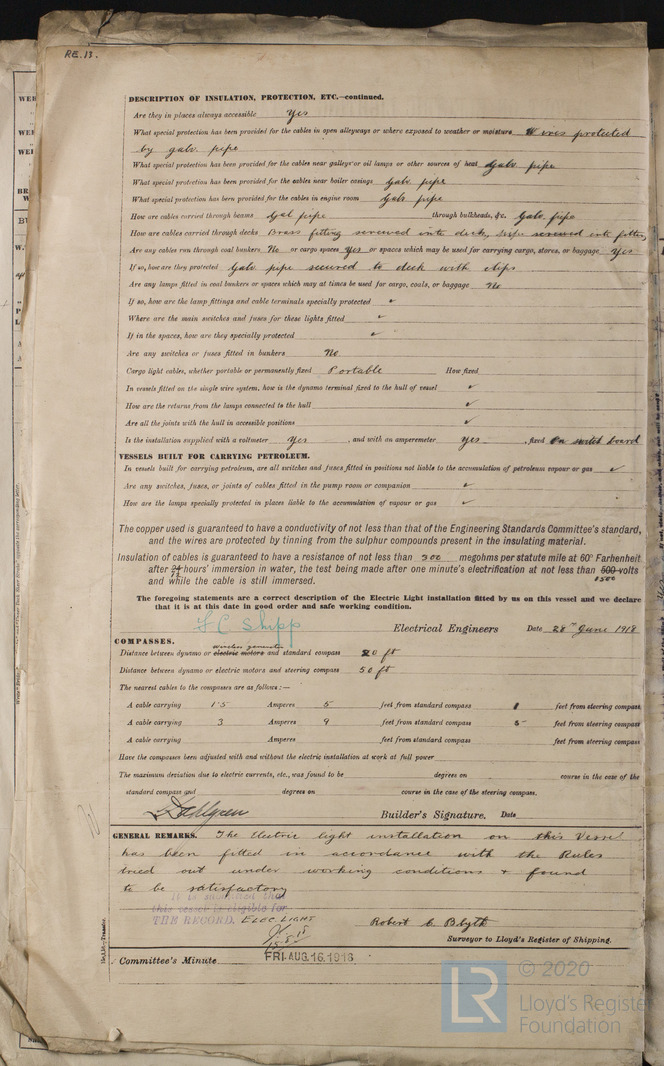 RE. 13.
DESCRIPTION OF INSULATION, PROTECTION, ETC.—continued.
Are they in places always accessible Yes
What special protection has been provided for the cables in open alleyways or where exposed to weather or moisture Wires protected
by galv. pipe
What special protection has been provided for the cables near galleys or oil lamps or other sources of heat Galv. pipe
What special protection has been provided for the cables near boiler casings Galv. pipe
What special protection has been provided for the cables in engine room Galv. pipe
How are cables carried through beams Gal pipe through bulkheads, &c. Galv. pipe
How are cables carried through decks Brass fitting screwed into deck, pipe screwed into fitting
Are any cables run through coal bunkers No or cargo spaces Yes or spaces which may be used for carrying cargo, stores, or baggage Yes
If so, how are they protected Galv pipe secured to deck with clips
Are any lamps fitted in coal bunkers or spaces which may at times be used for cargo, coals, or baggage No
If so, how are the lamp fittings and cable terminals specially protected ✓
Where are the main switches and fuses for these lights fitted ✓
If in the spaces, how are they specially protected ✓
Are any switches or fuses fitted in bunkers No
Cargo light cables, whether portable or permanently fixed Portable How fixed
In vessels fitted on the single wire system, how is the dynamo terminal fixed to the hull of vessel ✓
How are the returns from the lamps connected to the hull ✓
Are all the joints with the hull in accessible positions ✓
Is the installation supplied with a voltmeter Yes , and with an amperemeter Yes , fixed On switch board
VESSELS BUILT FOR CARRYING PETROLEUM.
In vessels built for carrying petroleum, are all switches and fuses fitted in positions not liable to the accumulation of petroleum vapour or gas ✓
Are any switches, fuses, or joints of cables fitted in the pump room or companion ✓
How are the lamps specially protected in places liable to the accumulation of vapour or gas ✓
The copper used is guaranteed to have a conductivity of not less than that of the Engineering Standards Committee's standard,
and the wires are protected by tinning from the sulphur compounds present in the insulating material.
Insulation of cables is guaranteed to have a resistance of not less than 300 megohms per statute mile at 60° Farhenheit
after 24 hours' immersion in water, the test being made after one minute's electrification at not less than 500 volts
and while the cable is still immersed. 1500
The foregoing statements are a correct description of the Electric Light installation fitted by us on this vessel and we declare
that it is at this date in good order and safe working condition.
F C Shipp Electrical Engineers Date 28th June 1918
COMPASSES.
wireless generator
Distance between dynamo or electric motors and standard compass 20 ft
Distance between dynamo or electric motors and steering compass 50 ft
The nearest cables to the compasses are as follows:—
A cable carrying 1.5 Amperes 5 feet from standard compass 1 feet from steering compass
A cable carrying 3 Amperes 9 feet from standard compass 5 feet from steering compass
A cable carrying Amperes feet from standard compass feet from steering compass
Have the compasses been adjusted with and without the electric installation at work at full power
The maximum deviation due to electric currents, etc., was found to be degrees on course in the case of the
standard compass and degrees on course in the case of the steering compass.
Builder's Signature. Date
GENERAL REMARKS. The Electric light installation on this Vessel
has been fitted in accordance with the Rules
tried out under working conditions & found
to be satisfactory
It is submitted that
this vessel is eligible for
THE RECORD. ELEC. LIGHT
Robert C. Blyth
Surveyor to Lloyd's Register of Shipping.
Committee's Minute FRI. AUG. 16. 1918
© 2020
Lloyd's Register
Foundation